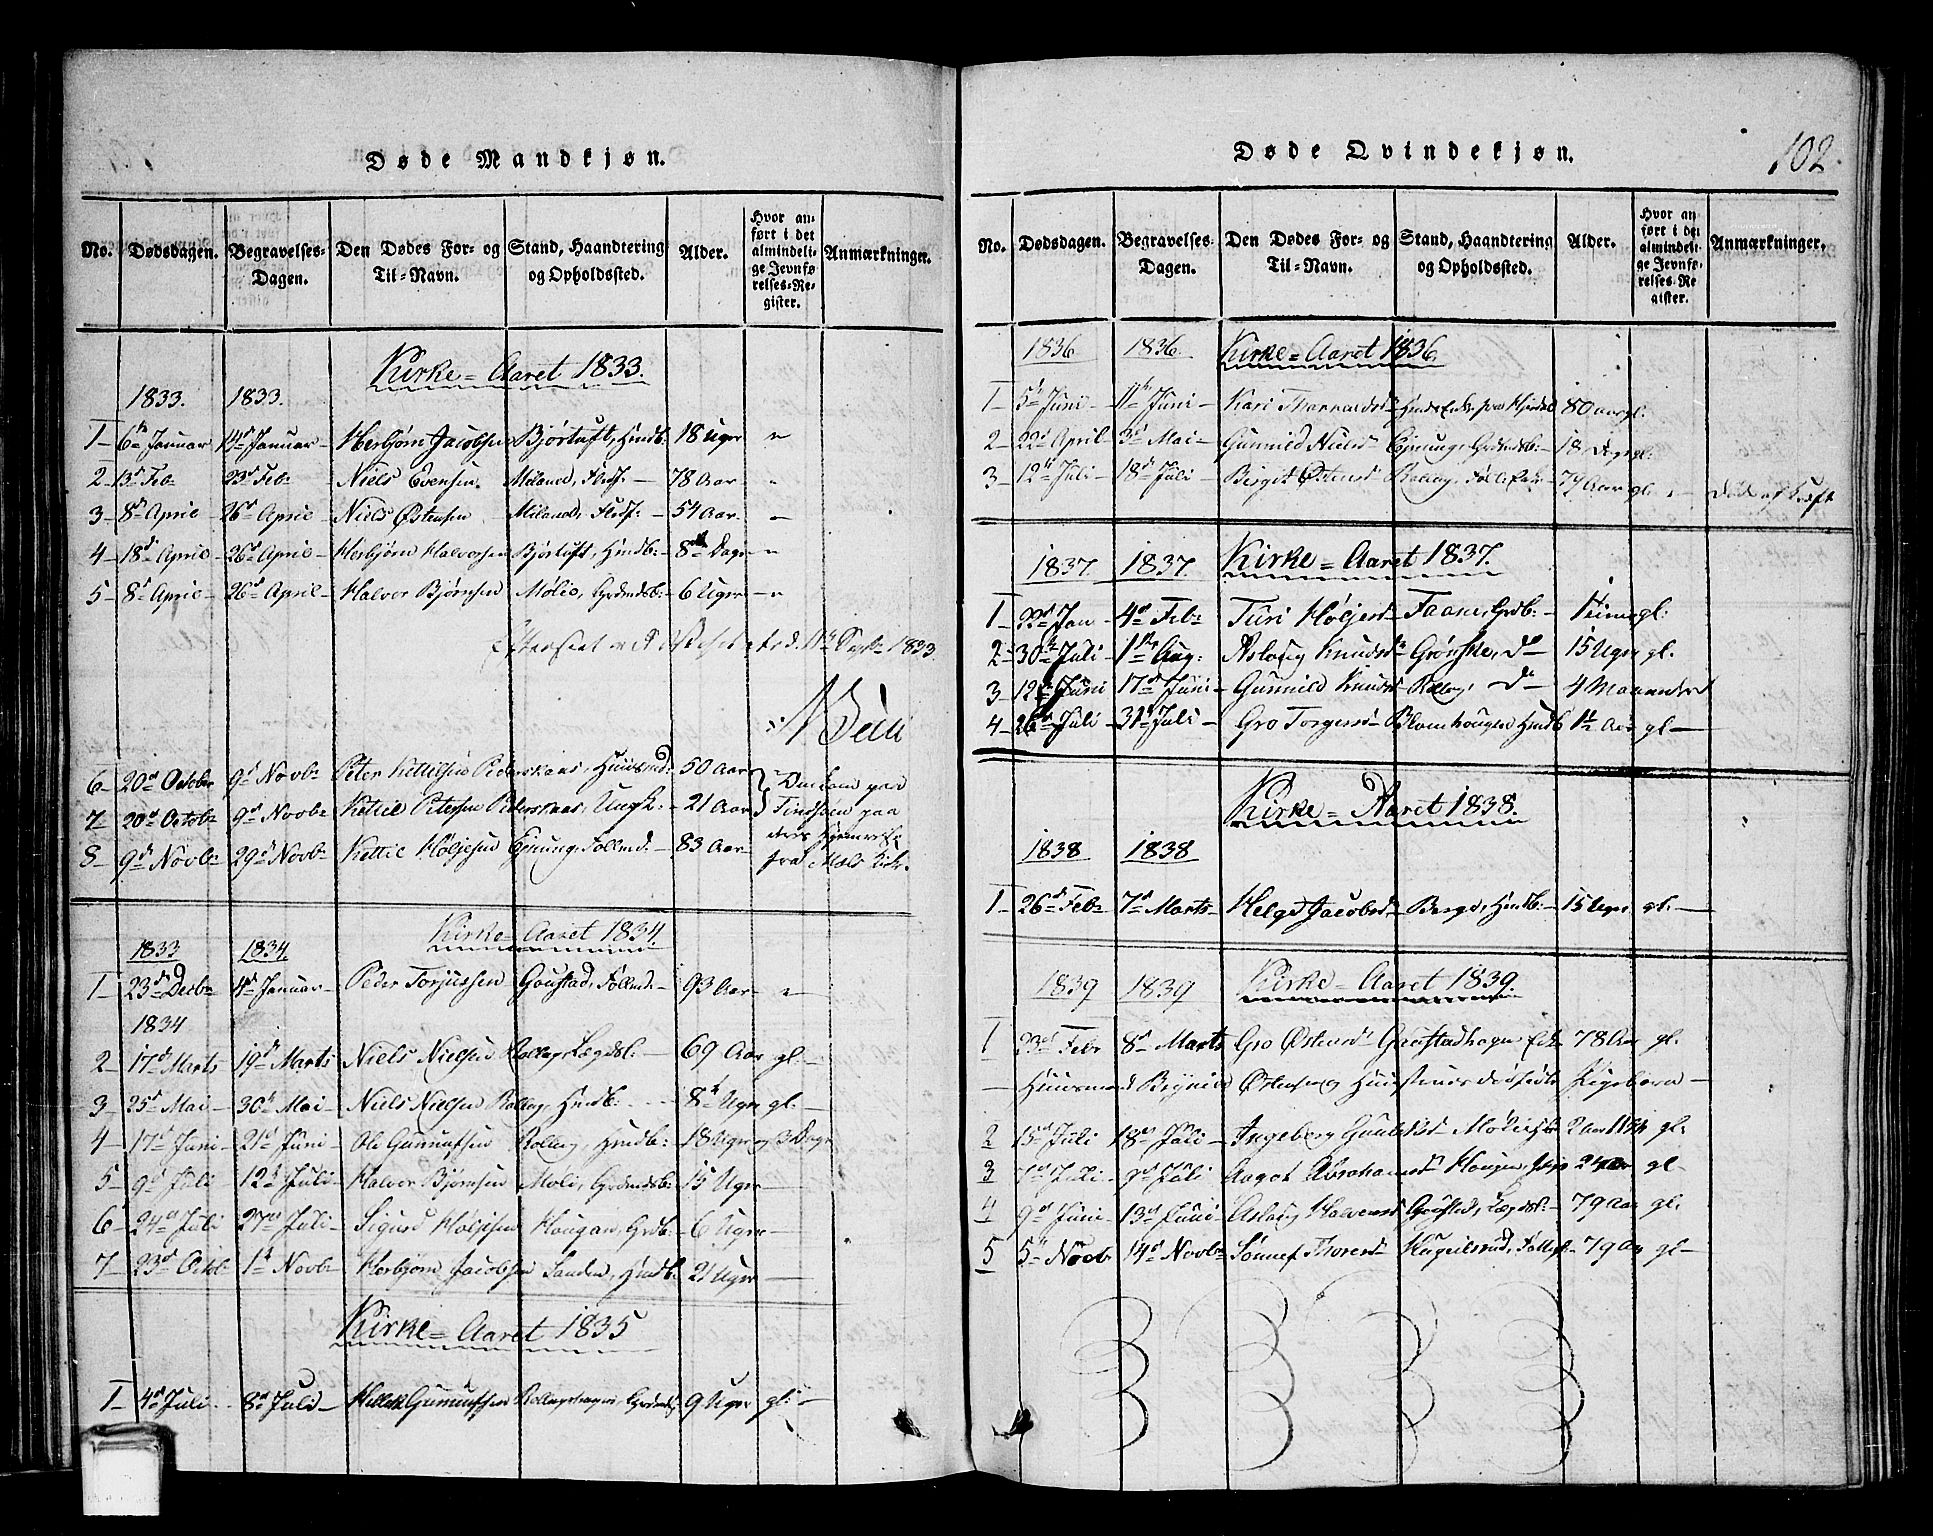 Døde Mandkjøn.
No. Dødsdagen. Begravelses-Dagen. Den Dødes For- og Til-Navn. Stand, Haandtering og Opholdssted. Alder. Hvor anført i det almindelige Jevnførelses-Register. Anmærkninger.
Kirke-Aaret 1833.
1833. 1833.
1 6te Januar 14d Januar Herbjørn Jacobsen Bjørtuft, Hmdb. 18 Uger "
2 13d Feb: 23d Feb: Niels Evensen Miland, 78 Aar "
3 8d April 26d April Niels Østensen Miland, 54 Aar "
4 18d April 26d April Herbjørn Halvorsen Bjørtuft, Hmdb: 8 Dage "
5 8d April 26d April Halvor Bjørnsen Møli, Grdmdsb: 6 Uger "
6 20d October 9d Novb: Peter Kittilsen Pederskaas, Huusmd: 50 Aar
7 20d Octob: 9d Novb: Kittil Petersen Pederskaas, Ungk: 21 Aar
8 9d Novb: 29d Novb: Kittil Høljesen Ejrung, Follmd. 83 Aar
Tindsøen paa
fra Mæls Kirke.
Kirke-Aaret 1834.
1833 1834.
1 23d Decbr 4d Januar Peder Torjussen Goustad, Follmd. 93 Aar "
1834
2 17d Marts 19d Marts Niels Nielsen Rollag Lægdsl: 69 Aar gl.
3 25d Mai 30d Mai Niels Nielsen Rollag, Hmdb: 8 Uger gl:
4 17d Juni 21d Juni Ole Gunnufsen Rollag, Hmdb: 18 Uger og 3 Dage
5 9d Juli 12d Juli Halvor Bjørnsen Moli, Grdmdsb: 15 Uger
6 24d Juli 27d Juli Sigurd Høljesen Hougan, Grdb: 6 Uger
7 23d Octob: 1te Novb: Herbjørn Jacobsen Sanden, Hmdb: 21 Uger
Kirke-Aaret 1835
1 4d Juli 8d Juli Gunnufsen 9 Uger gl:
Døde Qvindekjøn.
102.
No. Dødsdagen. Begravelses-Dagen. Den Dødes For- og Til-Navn. Stand, Haandtering og Opholdssted. Alder. Hvor anført i det almindelige Jevnførelses-Register. Anmærkninger.
1836 1836. Kirke-Aaret 1836.
1 5te Juni 11te Juni Kari 80 Aar gl.
2 22d April 3d Mai Gunnild Nielsd Ejrung, Grdmdsb: 18 Dage gl.
3 12te Juli 18d Juli Birgit Østensd Rollag, 79 Aar gl. Død af Kræft
1837. 1837. Kirke-Aaret 1837.
1 22d Jan 4d Feb: Turi Høljesd Faane, Grdb: 1 Time gl:
2 30te Juli 1te Aug: Aslaug Knudsd Grønske, do 15 Uger gl.
3 12te Juni 17d Juni Gunnild Knudsd Rollag, do 4 Maaneder
4 26d Juli 31d Juli Gro Torgersd Blomhougen Hmdb 1½ Aar gl
Kirke-Aaret 1838.
1838 1838
1 26d Feb: 7d Marts Helge Jacobsd Berge, Hmdb: 15 Uger gl.
1839 1839 Kirke-Aaret 1839.
1 23d Febr 8d Marts Gro Østensd Goustadhagen 78 Aar gl.
Huusmand Brynild Østensen og Hustrues dødfødte Pigebarn
2 15d Juli 18d Juli Ingeborg 2 Aar gl.
3 7d Juli 9d Juli Aagot Abrahamsd Hougen, 24 Aar gl
4 9d Juni 13d Juni Aslaug Halvorsd Goustad, Lægdsl: 79 Aar gl.
5 5te Novb 14d Novb: Sønnef Thoresd 79 Aar gl